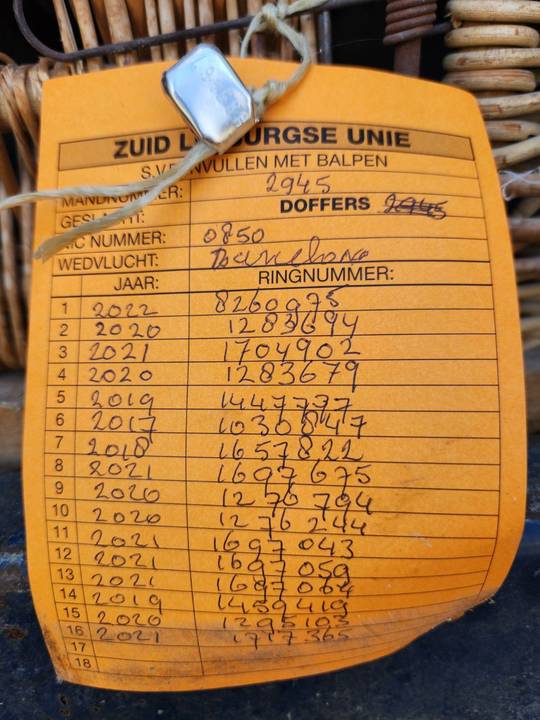 ZUID L BURGSE UNIE
S.V.P. INVULLEN MET BALPEN
MANDNUMMER: 2945
GESLACHT: DOFFERS 2945
IC NUMMER: 0850
WEDVLUCHT: Barcelona
JAAR: RINGNUMMER:
1 2022 8260975
2 2020 1283694
3 2021 1704902
4 2020 1283679
5 2019 1447777
6 2017 1030847
7 2018 1657822
8 2021 1697675
9 2020 1276794
10 2020 1276244
11 2021 1697043
12 2021 1697059
13 2021 1697064
14 2019 1459419
15 2020 1295103
16 2021 1717365
17
18